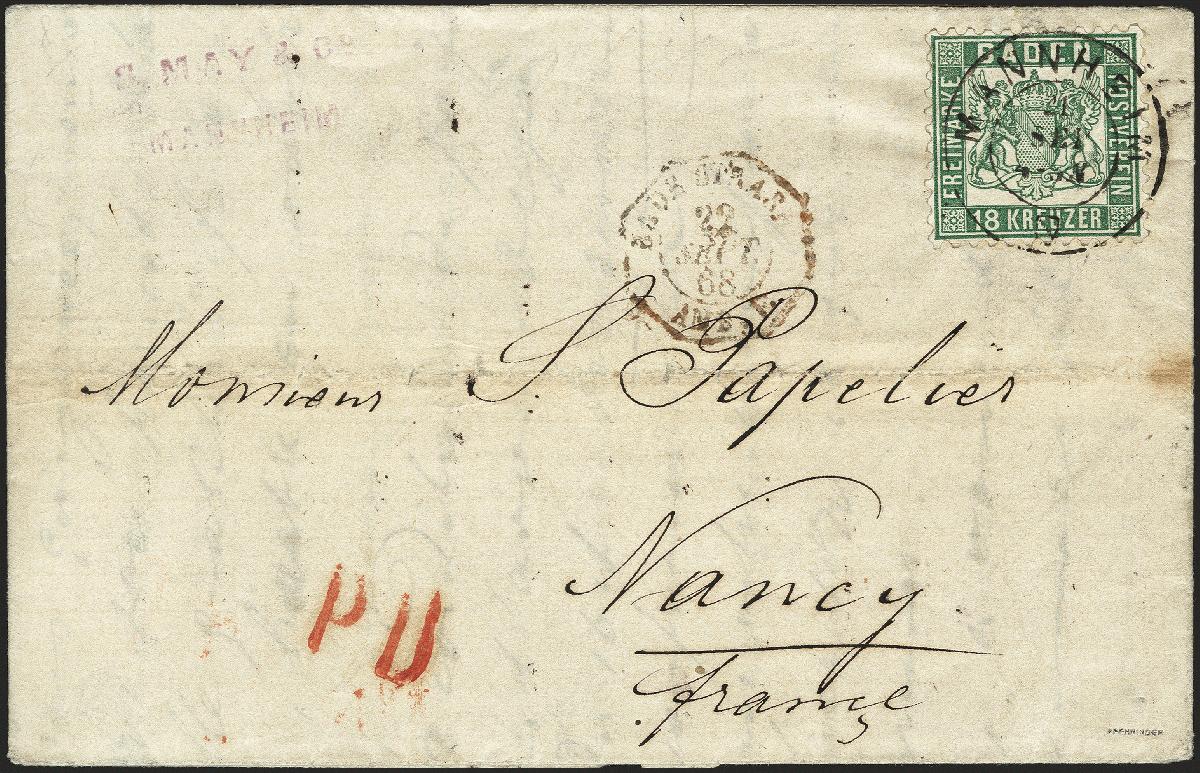 BADEN
FREIMARKE
POSTVEREIN
18 KREUZER
MANNHEIM
BADE STRASB
22
SEPT.
68
AMB
Monsieur S. Papelier
Nancy
france
PD
PFENNINGER